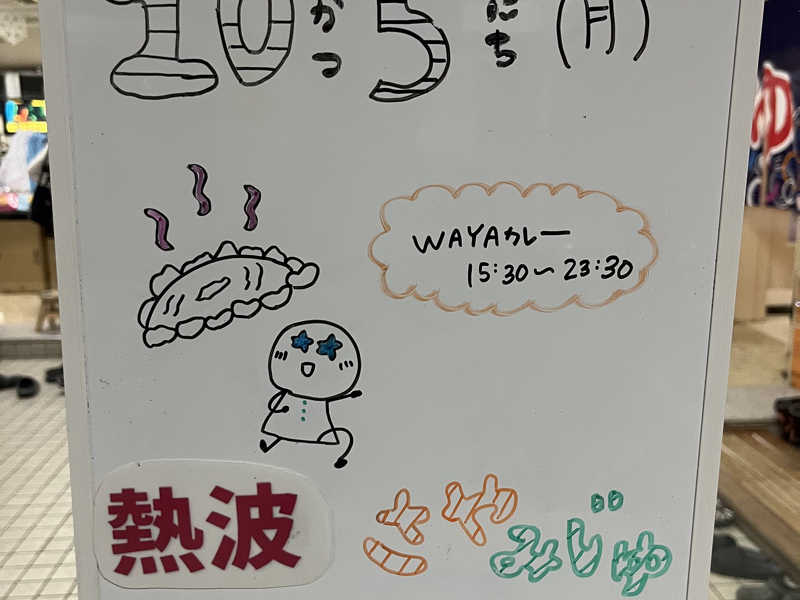 10がつ5にち(月)
WAYAカレー
15:30～23:30
熱波
さや
みじゅ